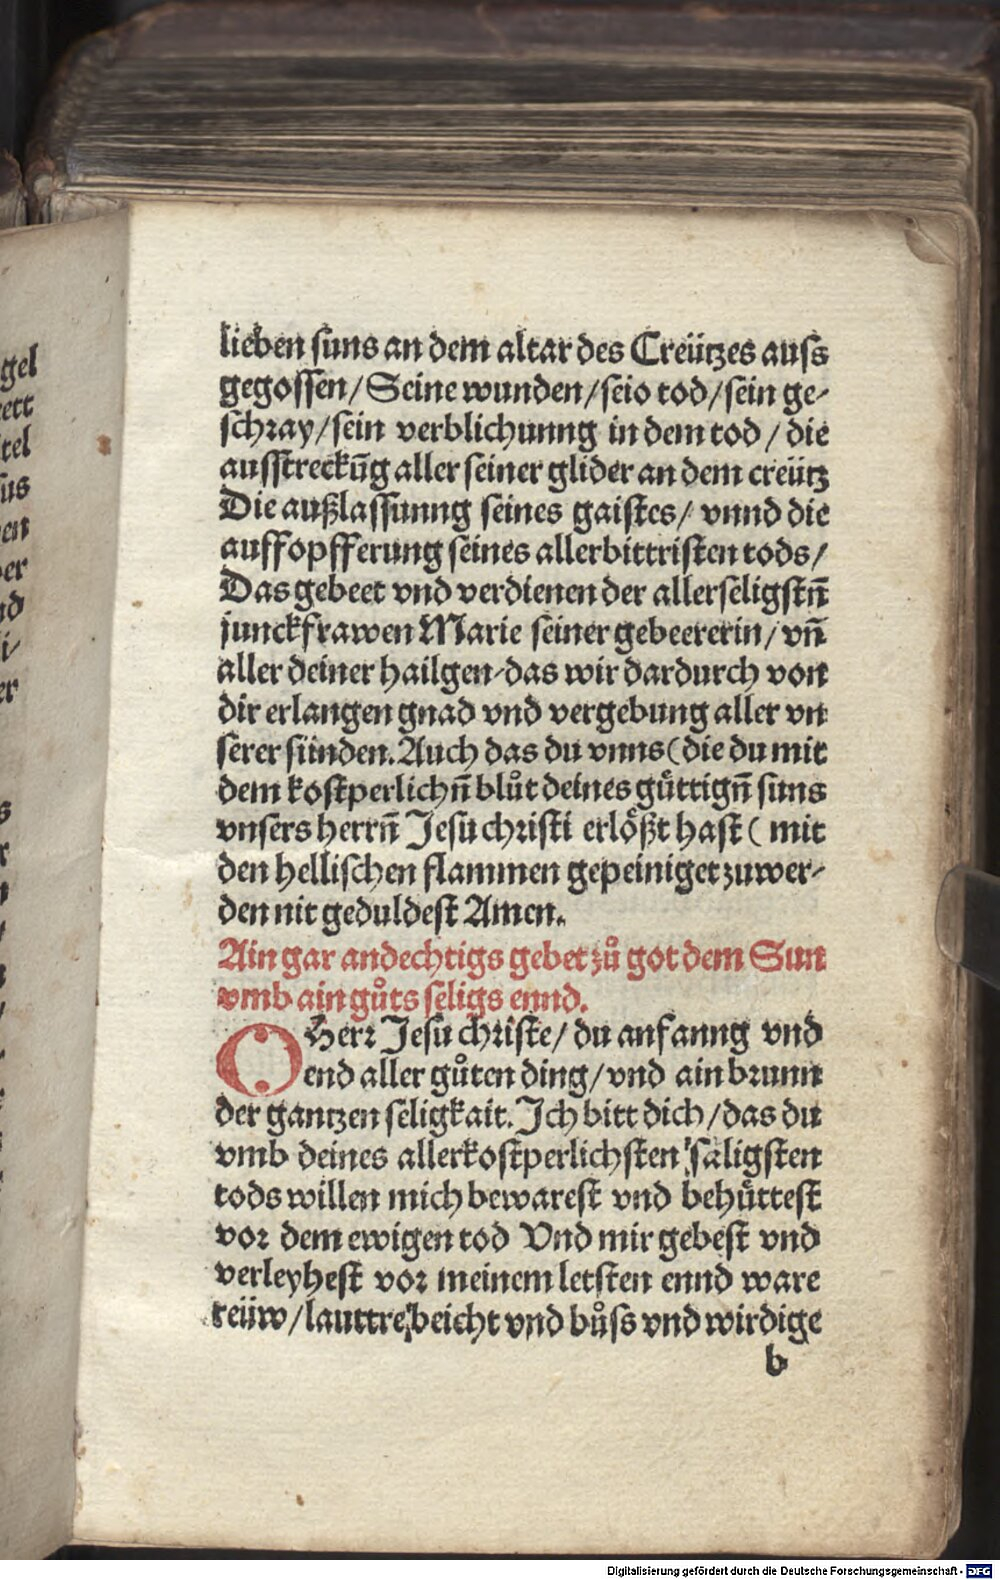 lieben suns an dem altar des Creützes auss
gegossen/ Seine wunden/ seio tod/ sein ge-
schray/ sein verblichunng in dem tod / die
ausstreckūg aller seiner glider an dem creütz
Die außlassunng seines gaistes/ vnnd die
auffopfferung seines allerbittristen tods/
Das gebeet vnd verdienen der allerseligstn̄
junckfrawen Marie seiner gebeererin/ vn̄
aller deiner hailgen-das wir dardurch von
dir erlangen gnad vnd vergebung aller vn
serer sünden. Auch das du vnns (die du mit
dem kostperlichn̄ blůt deines güttign̄ suns
vnsers herrn̄ Jesu christi erlößt hast ( mit
den hellischen flammen gepeiniget zuwer-
den nit geduldest Amen.
Ain gar andechtigs gebet zů got dem Sun
vmb ain gůts seligs ennd.
O Herr Jesu christe/ du anfanng vnd
end aller gůten ding/ vnd ain brunn
der gantzen seligkait. Ich bitt dich/ das du
vmb deines allerkostperlichsten saligsten
tods willen mich bewarest vnd behüttest
vor dem ewigen tod Vnd mir gebest vnd
verleyhest vor meinem letsten ennd ware
reüw/ lauttre beicht vnd bůss vnd wirdige
b
gel
ett
tel
sus
en
er
nd
i/
er
s
r
Digitalisierung gefördert durch die Deutsche Forschungsgemeinschaft - DFG